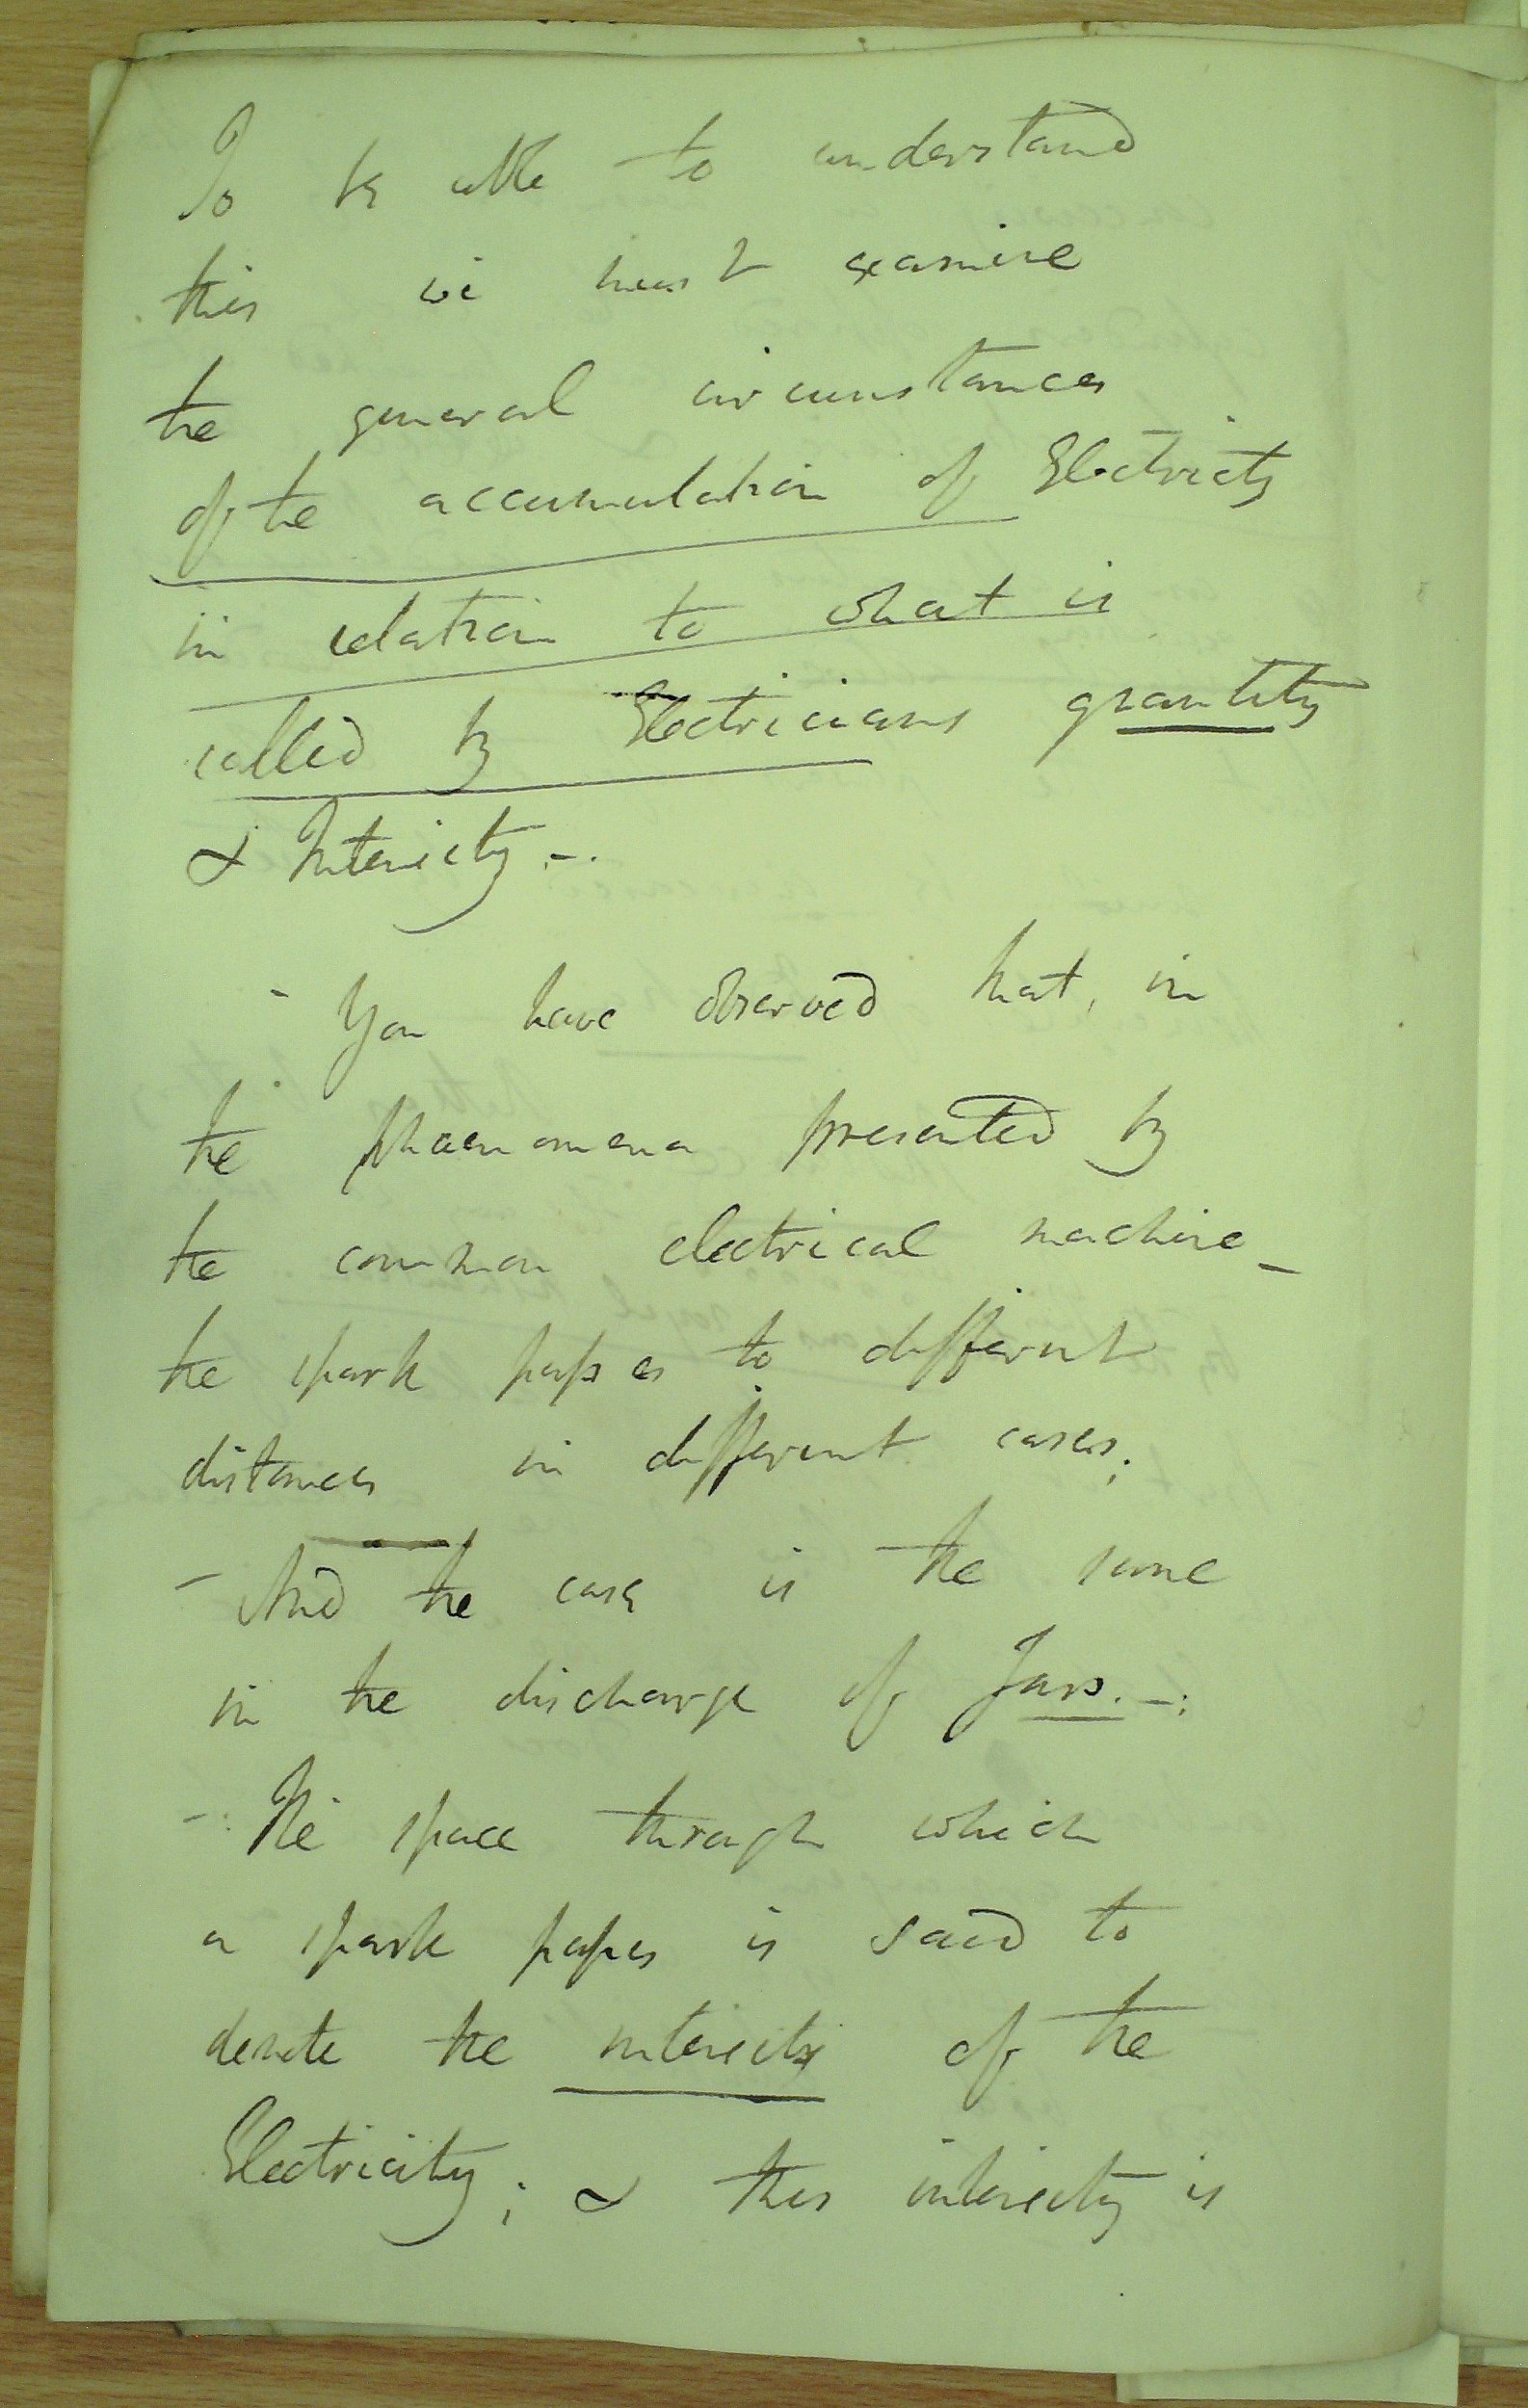 To be able to understand
this we must examine
the general circumstances
of the accumulation of Electricity
in relation to what is
called by Electricians quantity
& Intensity -.
- You have observed that, in
the phaenomena presented by
the common electrical machine -
the spark passes to different
distances in different cases;
- And the case is the same
in the discharge of Jars. -:
-: The space through which
a spark passes is said to
denote the intensity of the
Electricity; & this intensity is